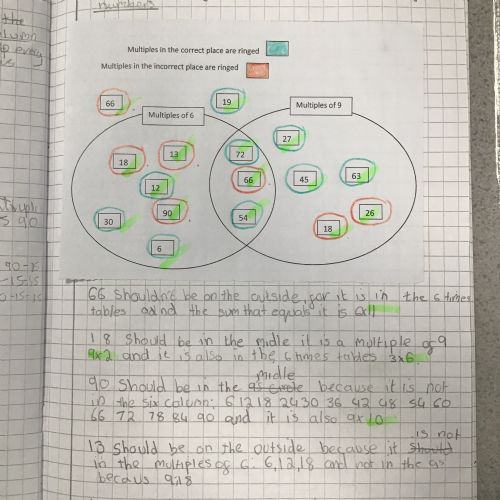 numbers
the
column
Multiples in the correct place are ringed
Multiples in the incorrect place are ringed
66
19
Multiples of 6
Multiples of 9
27
13
72
18
66
45
63
12
90
54
26
30
18
6
66 Shouldn't be on the outside, for it is in the 6 times
tables and the sum that equals it is 6x11
18 Should be in the midle it is a multiple of 9
9x2 and it is also in the 6 times tables 3x6
midle
90 Should be in the because it is not
in the six column: 6 12 18 24 30 36 42 48 54 60
66 72 78 84 90 and it is also 9x10
is not
13 should be on the outside because it should
in the multiples of 6: 6, 12, 18 and not in the 9s
becaus 9, 18